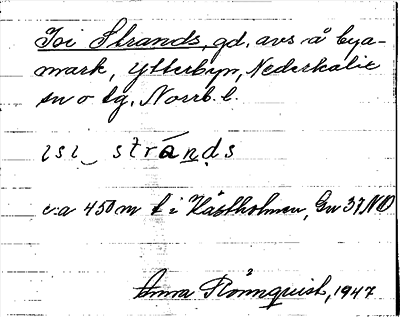 Isi Strands, gd. avs å bya-
mark, Ytterbyn, Nederkalix
sn o tg, Norrb. l.
ɪsɪ‿ stránds
c:a 450 m t i Hästholmen, Gv 37 NO
Anna Rönnquist, 1947